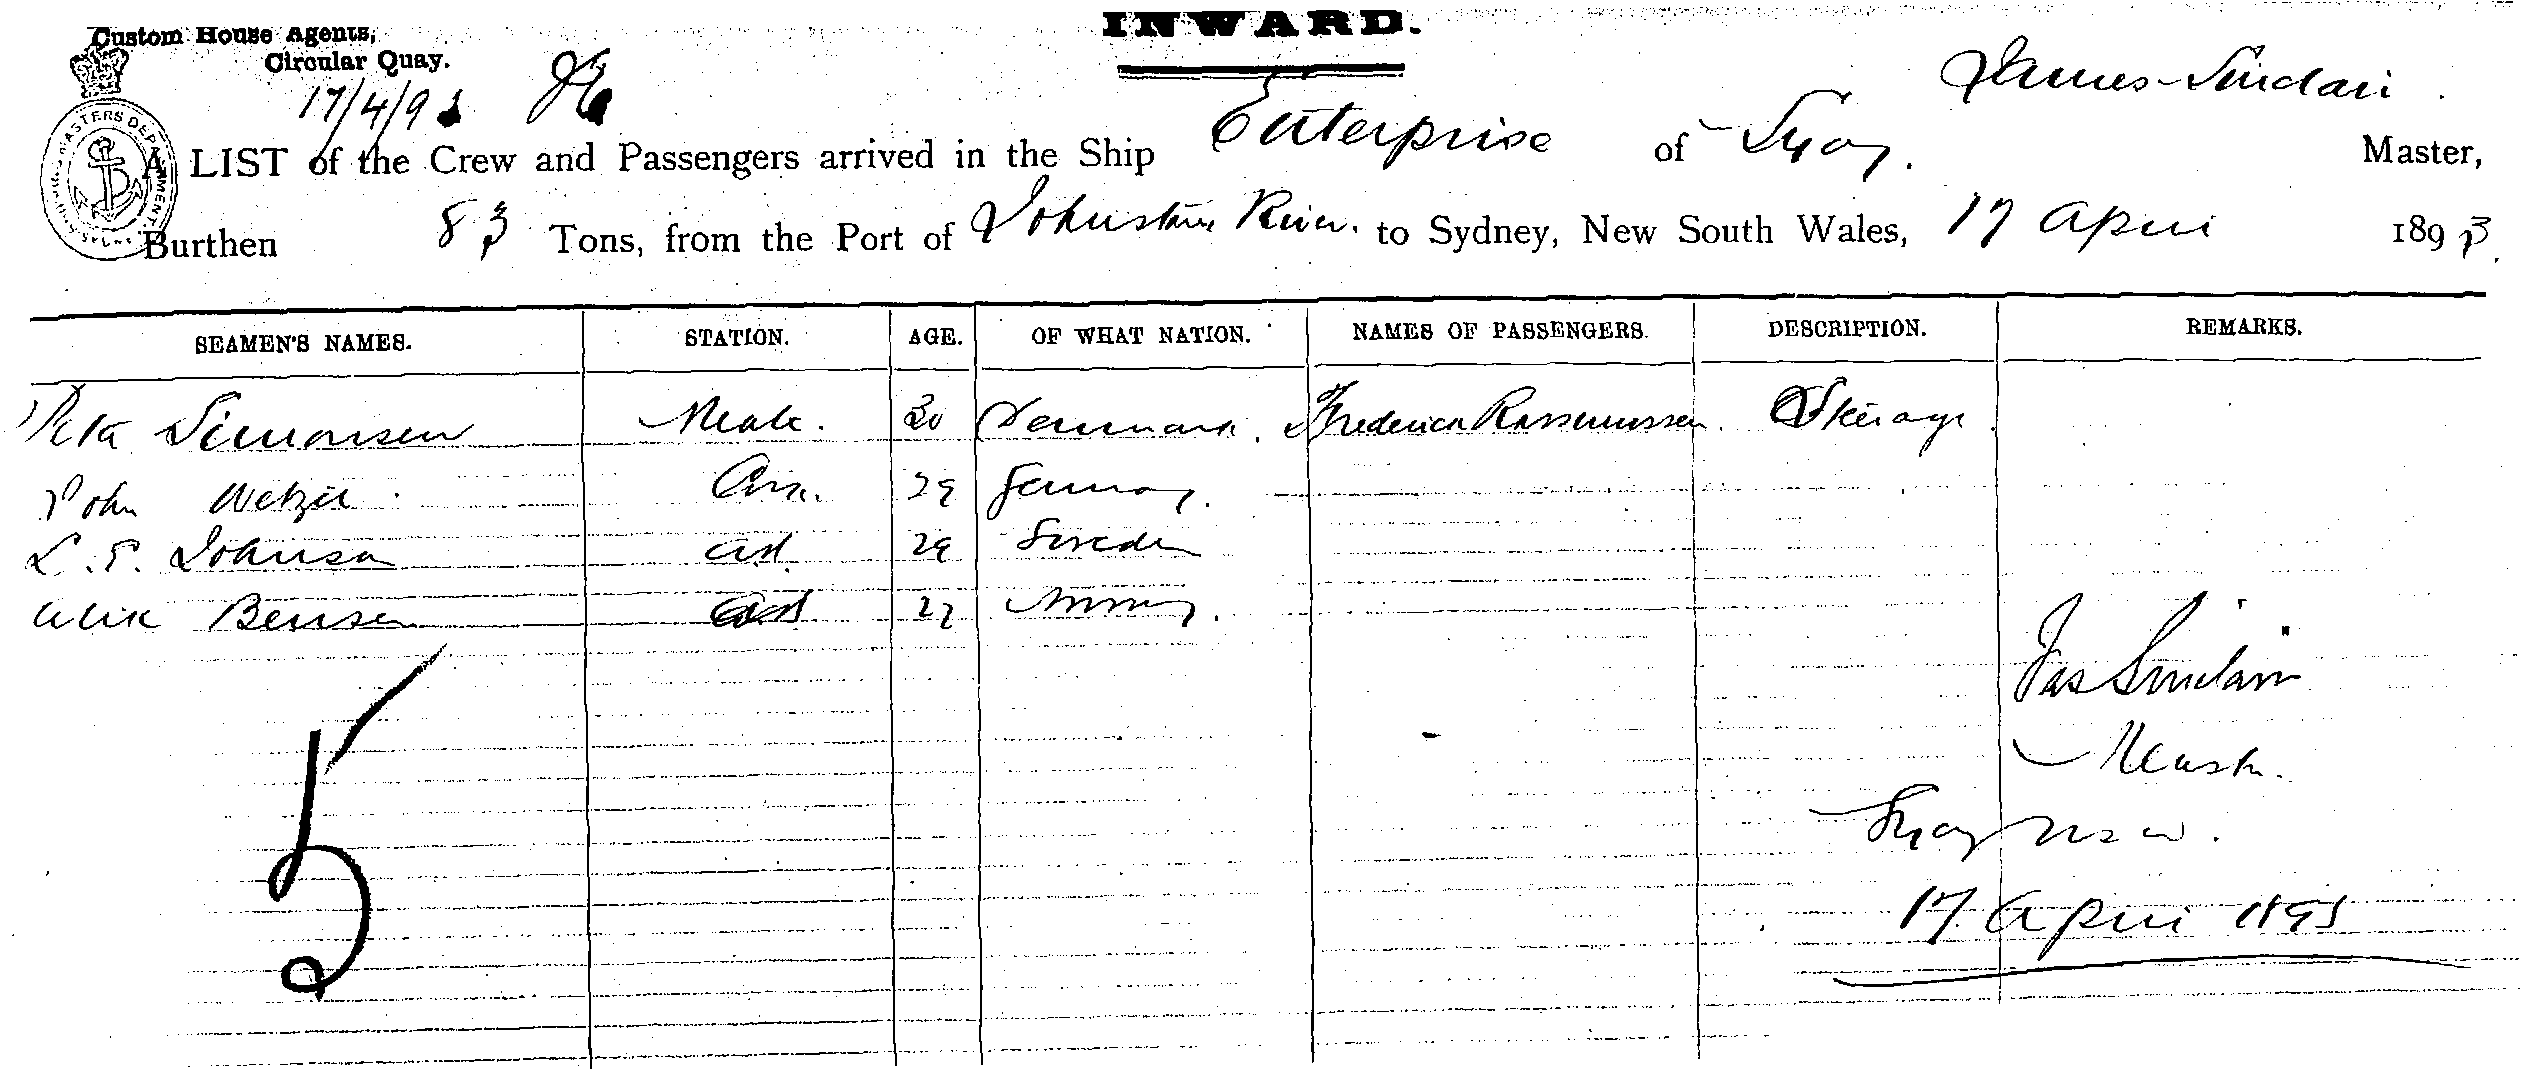 INWARD.
Custom House Agents,
Circular Quay.
17/4/93
James Sinclair
A LIST of the Crew and Passengers arrived in the Ship Enterprise of Syd Master,
Burthen 83 Tons, from the Port of Johnstone River. to Sydney, New South Wales, 17 April 1893.
SEAMEN'S NAMES. STATION. AGE. OF WHAT NATION. NAMES OF PASSENGERS. DESCRIPTION. REMARKS.
Peter Simonsen Mate. 30 Denmark. Frederick Rassmussen. Steerage
John Wetzel 29 Germany.
L. P. Johnson AB. 29 Sweden
Alex Bensen AB 27 Norway.
5
Jas Sinclair
Master.
NSW.
17 April 1893